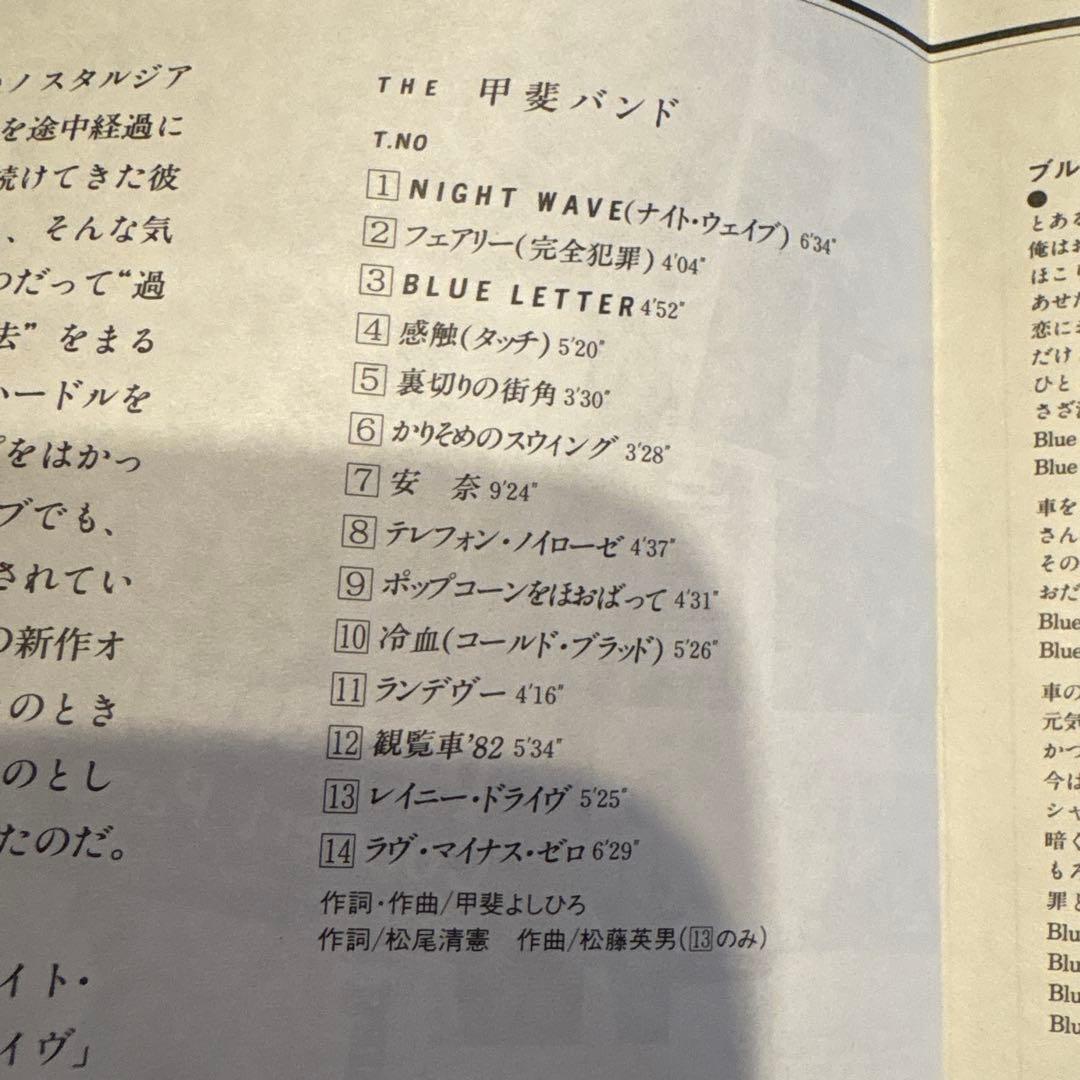 ノスタルジア
を途中経過に
続けてきた彼
、そんな気
つだって“過
去”をまる
ハードルを
をはかっ
ブでも、
されてい
の新作オ
のとき
のとし
たのだ。
イト・
イヴ」
THE 甲斐バンド
T.NO
1 NIGHT WAVE(ナイト・ウェイブ) 6'34"
2 フェアリー(完全犯罪) 4'04"
3 BLUE LETTER 4'52"
4 感触(タッチ) 5'20"
5 裏切りの街角 3'30"
6 かりそめのスウイング 3'28"
7 安 奈 9'24"
8 テレフォン・ノイローゼ 4'37"
9 ポップコーンをほおばって 4'31"
10 冷血(コールド・ブラッド) 5'26"
11 ランデヴー 4'16"
12 観覧車'82 5'34"
13 レイニー・ドライヴ 5'25"
14 ラヴ・マイナス・ゼロ 6'29"
作詞・作曲/甲斐よしひろ
作詞/松尾清憲 作曲/松藤英男(13のみ)
ブル
●
とある
俺はお
ほこり
あせた
恋に
だけ
ひと
さざ
Blue
Blue
車を
さん
その
おだ
Blue
Blue
車の
元気
かつ
今は
シャ
暗く
もえ
罪と
Blu
Blu
Blu
Blu